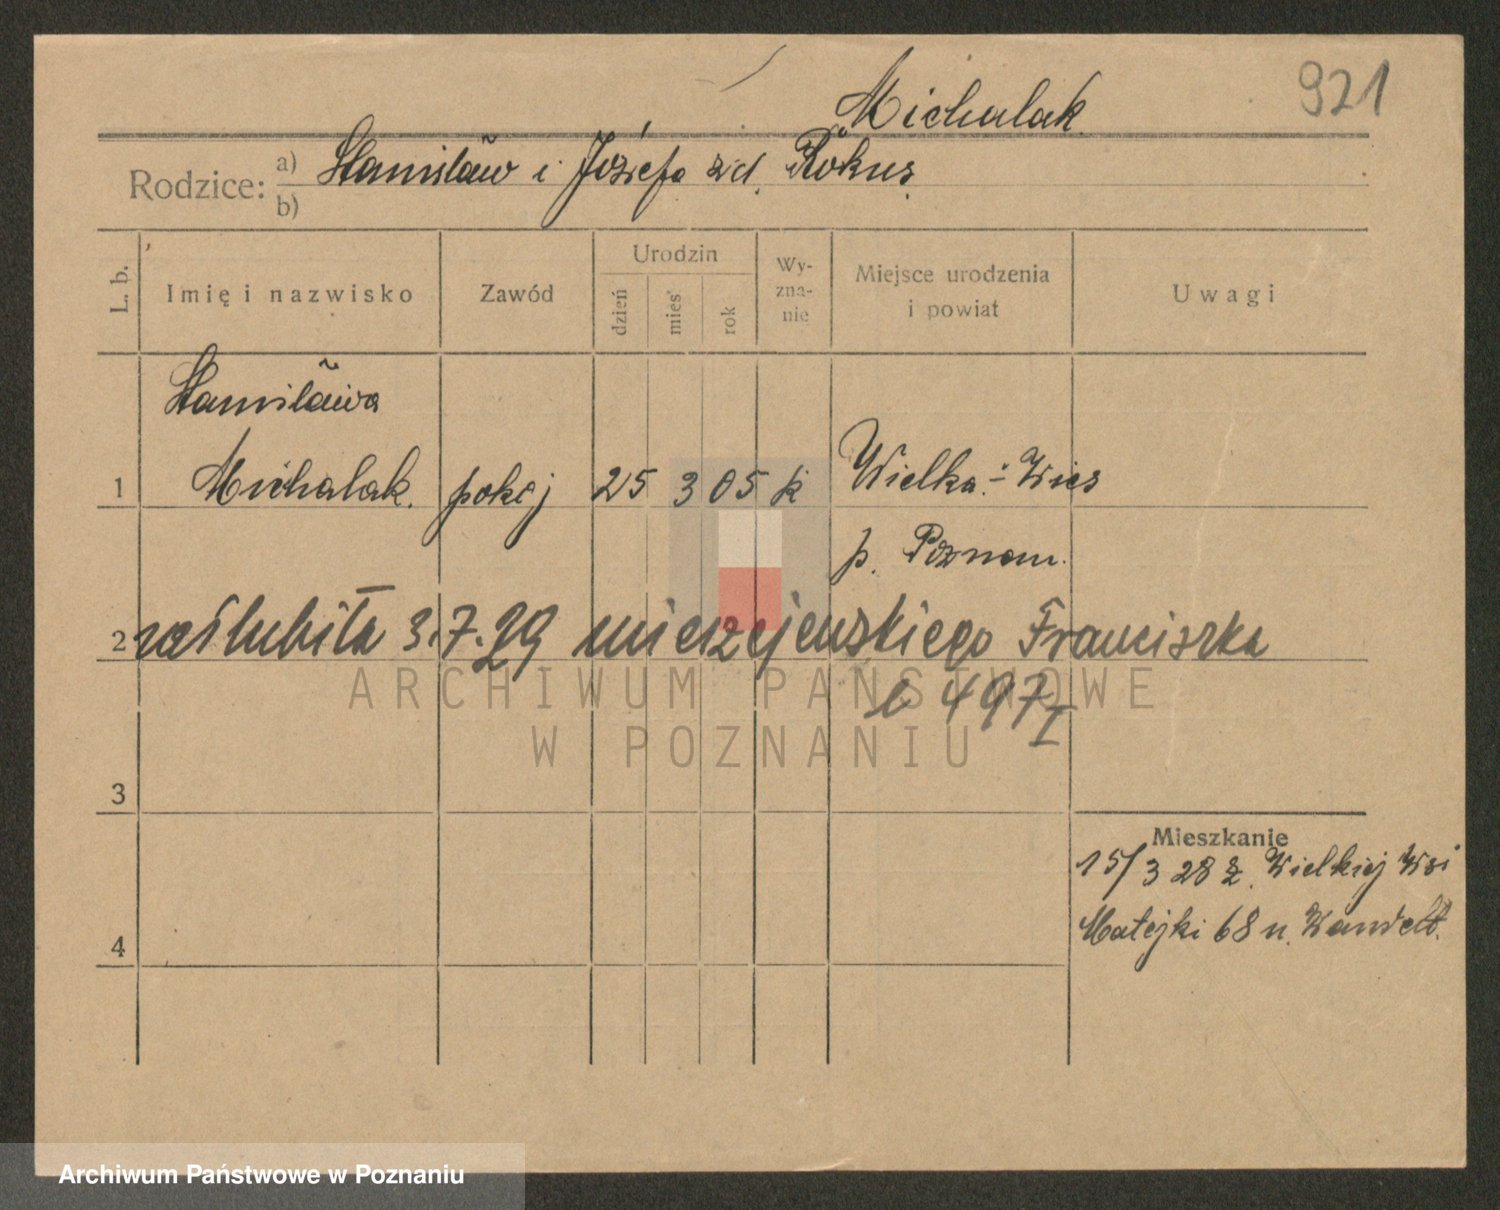 Michalak
921
Rodzice: a) Stanisław i Józefa zd. Rokus
b)
L. b.
Imię i nazwisko
Zawód
Urodzin
dzień
mies'
rok
Wy-
zna-
nie
Miejsce urodzenia
i powiat
Uwagi
Stanisława
1 Michalak. pokoj 25 3 05 k Wielka-Wies
p. Poznan.
2 zaślubiła 3.7.29 Mierzejewskiego Franciszka
497 I
ARCHIWUM PAŃSTWOWE
W POZNANIU
3
Mieszkanie
15/3 28 z. Wielkiej Wsi
Matejki 68 u.
4
Archiwum Państwowe w Poznaniu